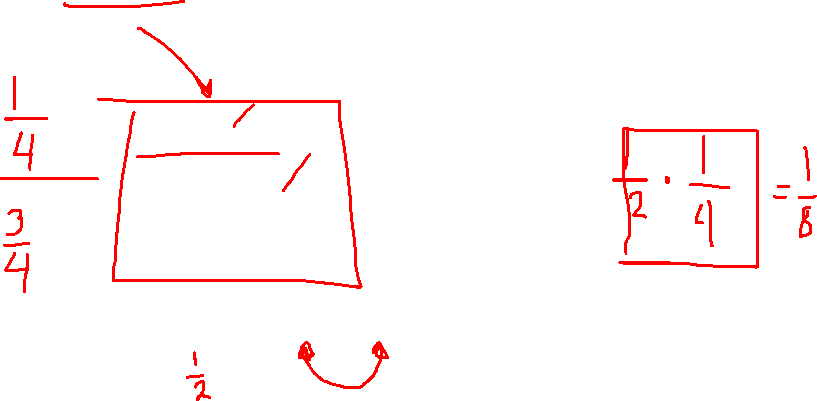 1/4
3/4
1/2
1/2 · 1/4 = 1/8